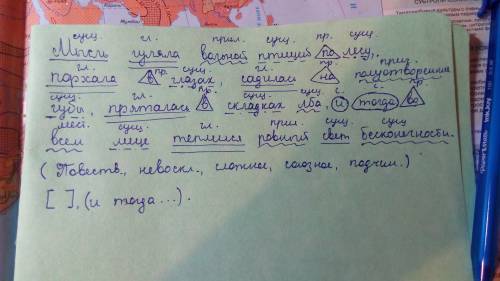 сущ. гл. прил. сущ. пр. сущ.
Мысль гуляла вольной птицей по лесу,
гл. пр. сущ. гл. пр. прил.
порхала в глазах, садилась на полуотворенные
сущ. гл. пр. сущ. сущ. с. с. пр.
губы, пряталась в складках лба, и тогда во
мест. сущ. гл. прил. сущ. сущ.
всем лице теплился ровный свет беспечности.
(Повеств., невоскл., сложное, союзное, подчин.)
[ ], (и тогда ...).